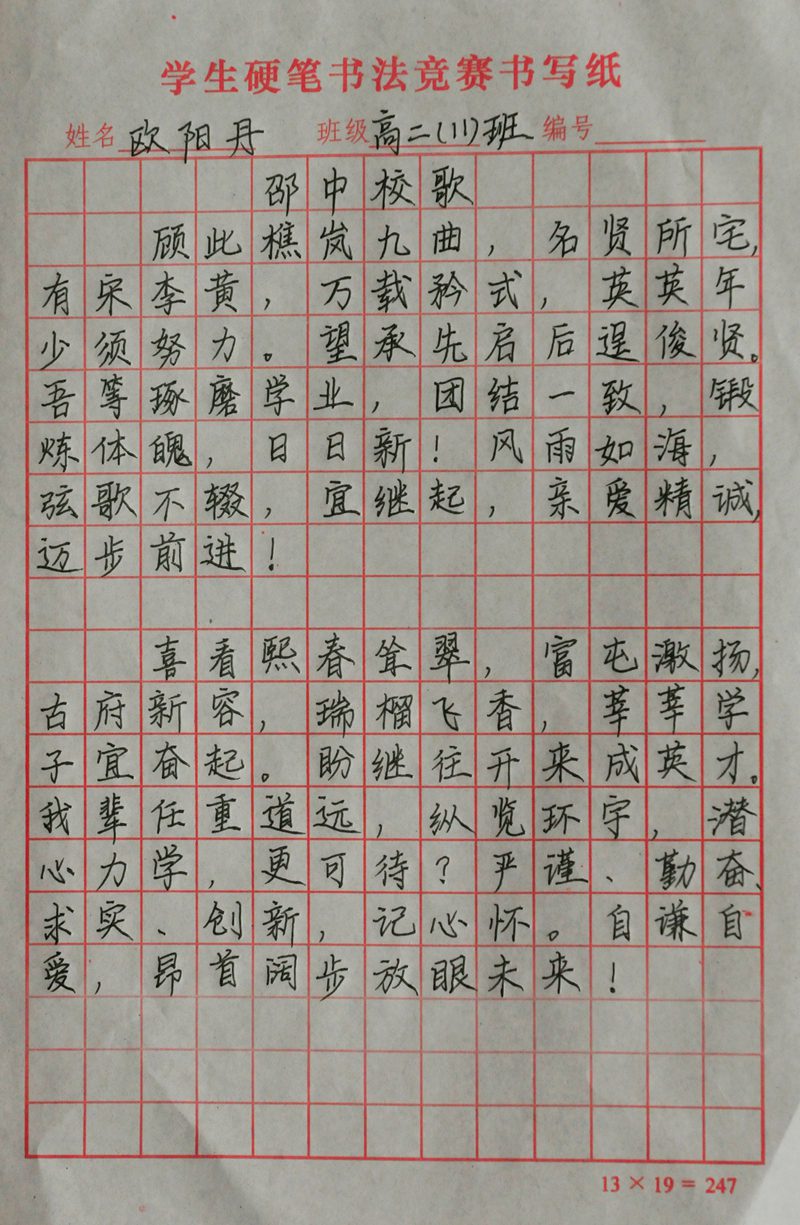 学生硬笔书法竞赛书写纸
姓名 欧阳丹 班级 高二(11)班 编号
邵中校歌
顾此樵岚九曲，名贤所宅，
有宋李黄，万载矜式，英英年
少须努力。望承先启后逞俊贤。
吾等琢磨学业，团结一致，锻
炼体魄，日日新！风雨如海，
弦歌不辍，宜继起，亲爱精诚，
迈步前进！
喜看熙春耸翠，富屯激扬，
古府新容，瑞榴飞香，莘莘学
子宜奋起。盼继往开来成英才。
我辈任重道远，纵览环宇，潜
心力学，更可待？严谨、勤奋、
求实、创新，记心怀。自谦自
爱，昂首阔步放眼未来！
13×19=247